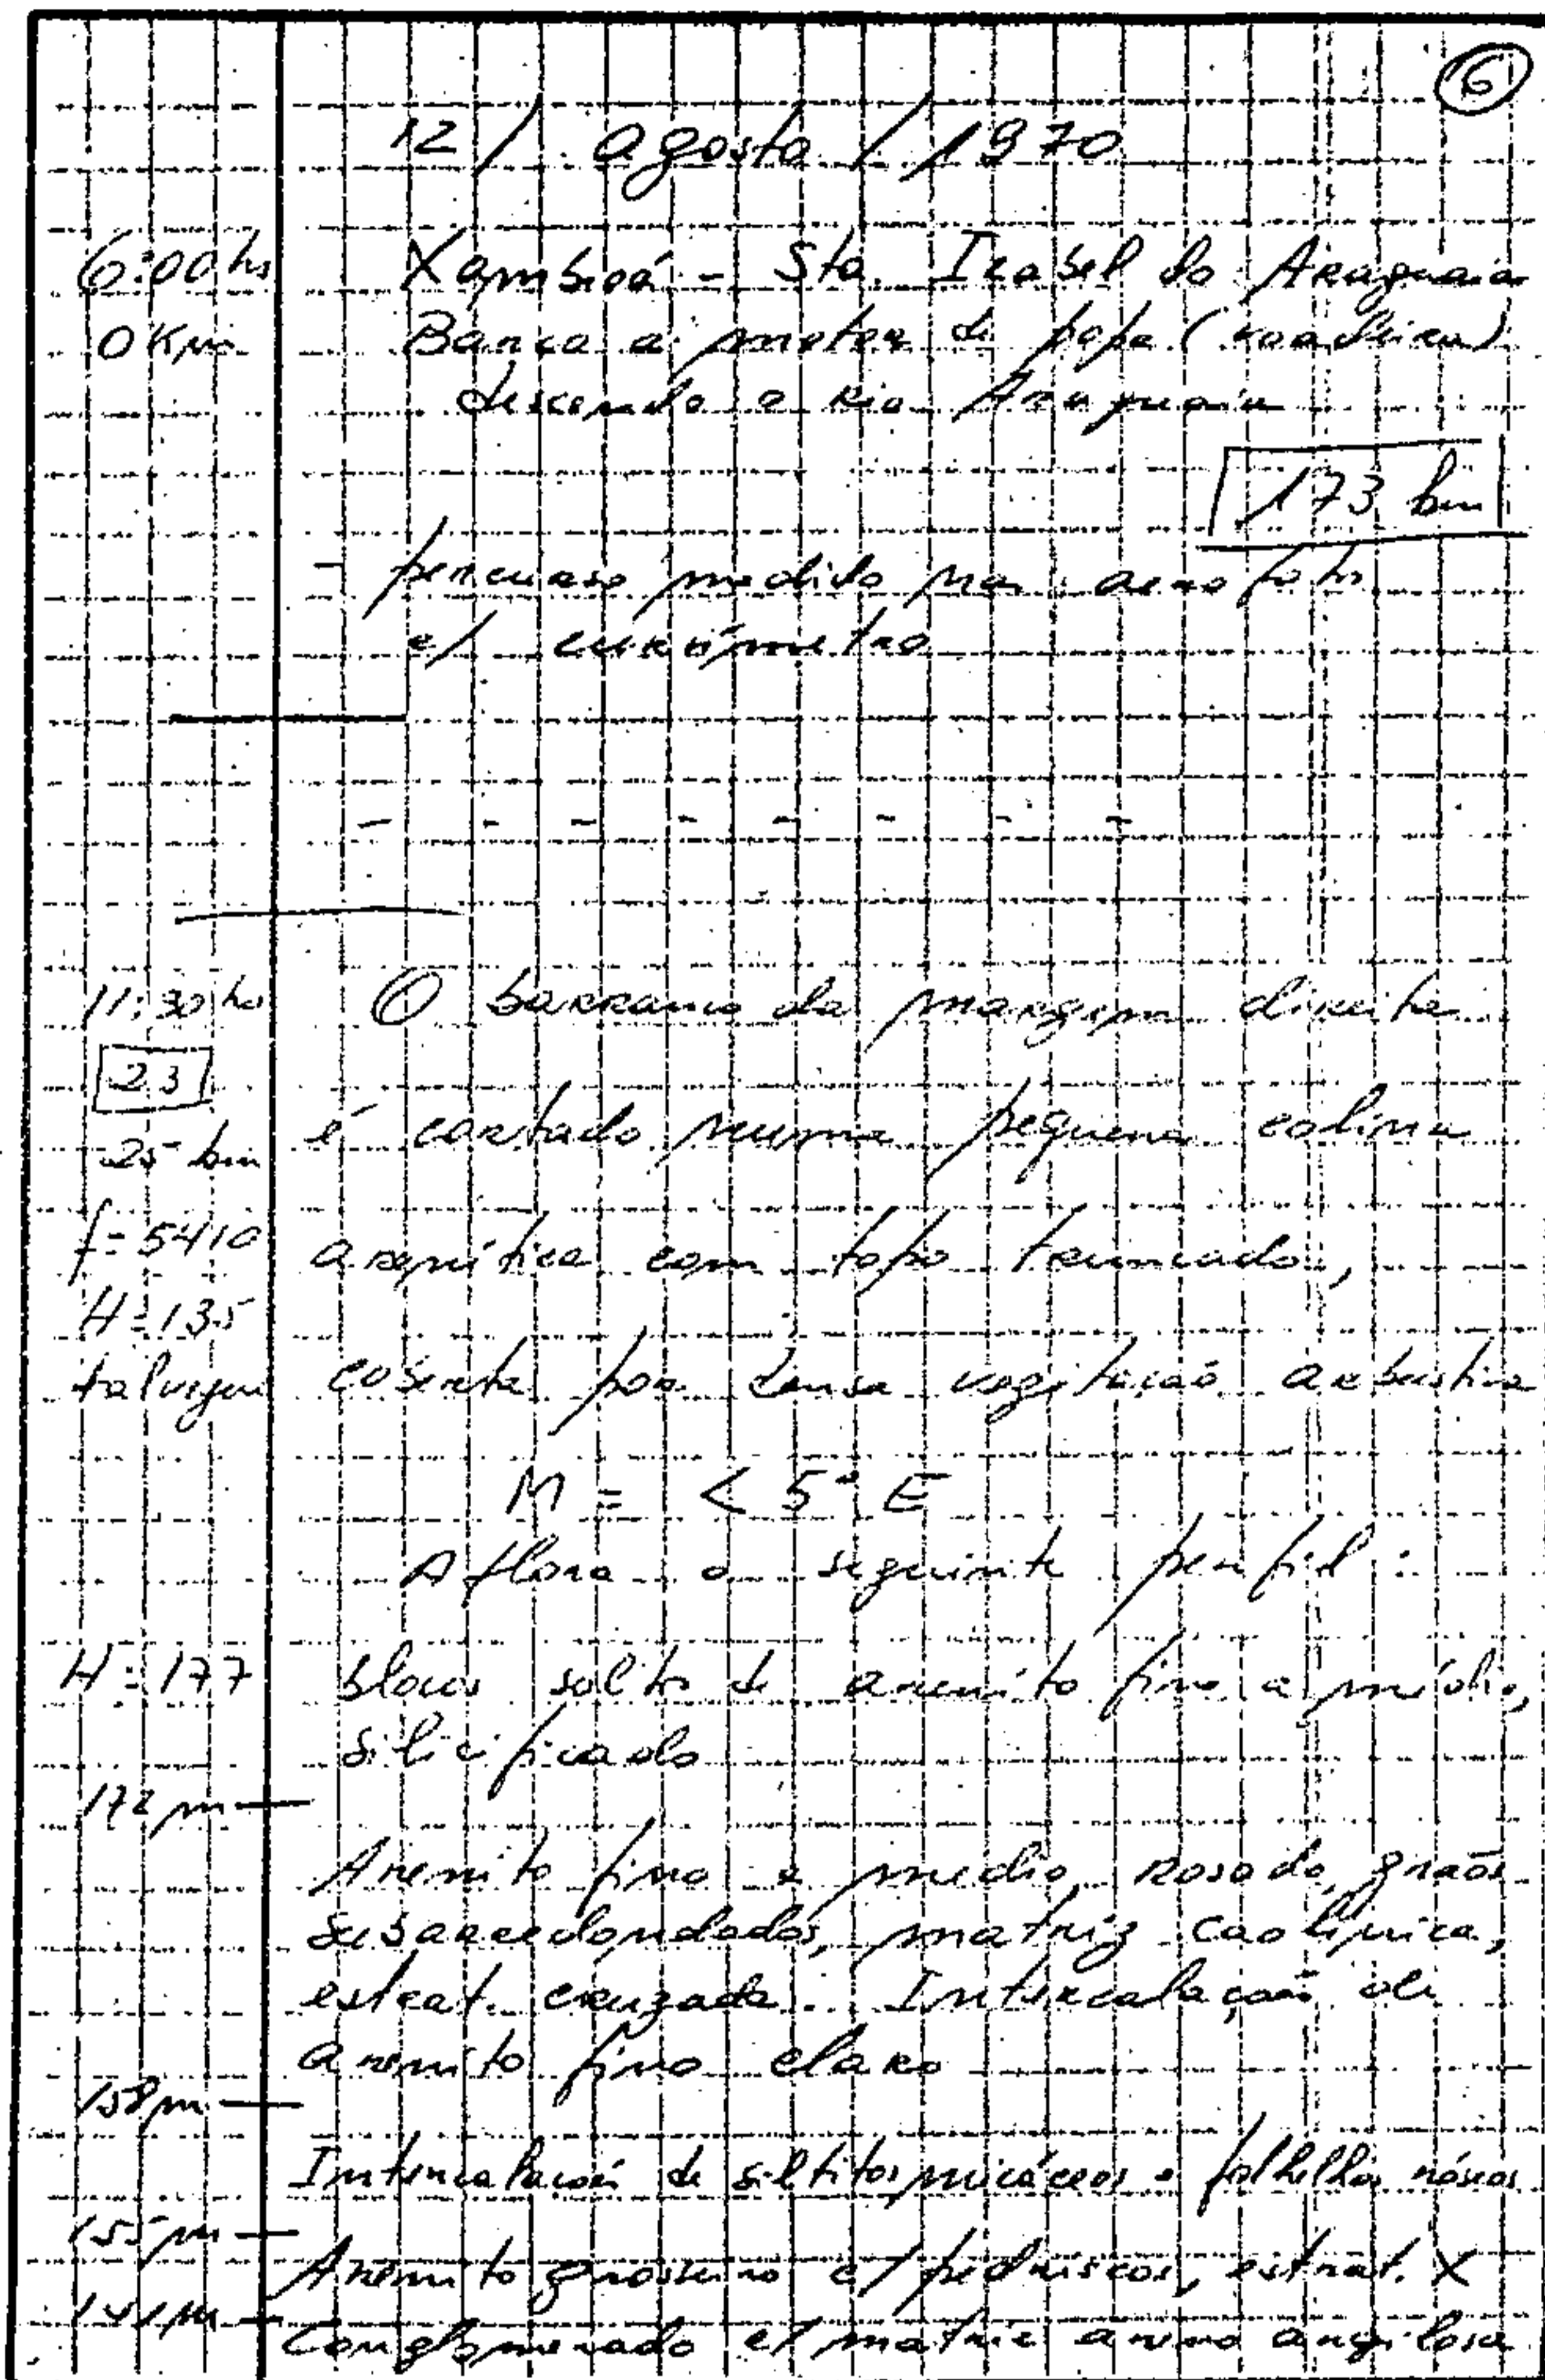 6
12 / agosto / 1970
6:00 hs Xambioá - Sta. Izabel do Araguaia
0 Km Barco a motor de popa (voadeira)
descendo o rio Araguaia
173 km
- percurso medido na aerofoto
c/ curvímetro
11:30 hs O barranco da margem direita
23
25 km é cortado numa pequena colina
f = 5410 arenítica com topo truncado,
H = 135
talvegue coberta por densa vegetação arbustiva
M = < 5° E
Aflora o seguinte perfil:
H = 177 blocos soltos de arenito fino a médio,
silicificado
172 m
Arenito fino a medio, rosado, grãos
subarredondados, matriz caolínica,
estrat. cruzada. Intercalação de
arenito fino claro
158 m
Intercalação de siltitos micáceos e folhelhos róseos
155 m
Arenito grosseiro c/ pedriscos, estrat. X
141 m
Conglomerado c/ matriz areno argilosa